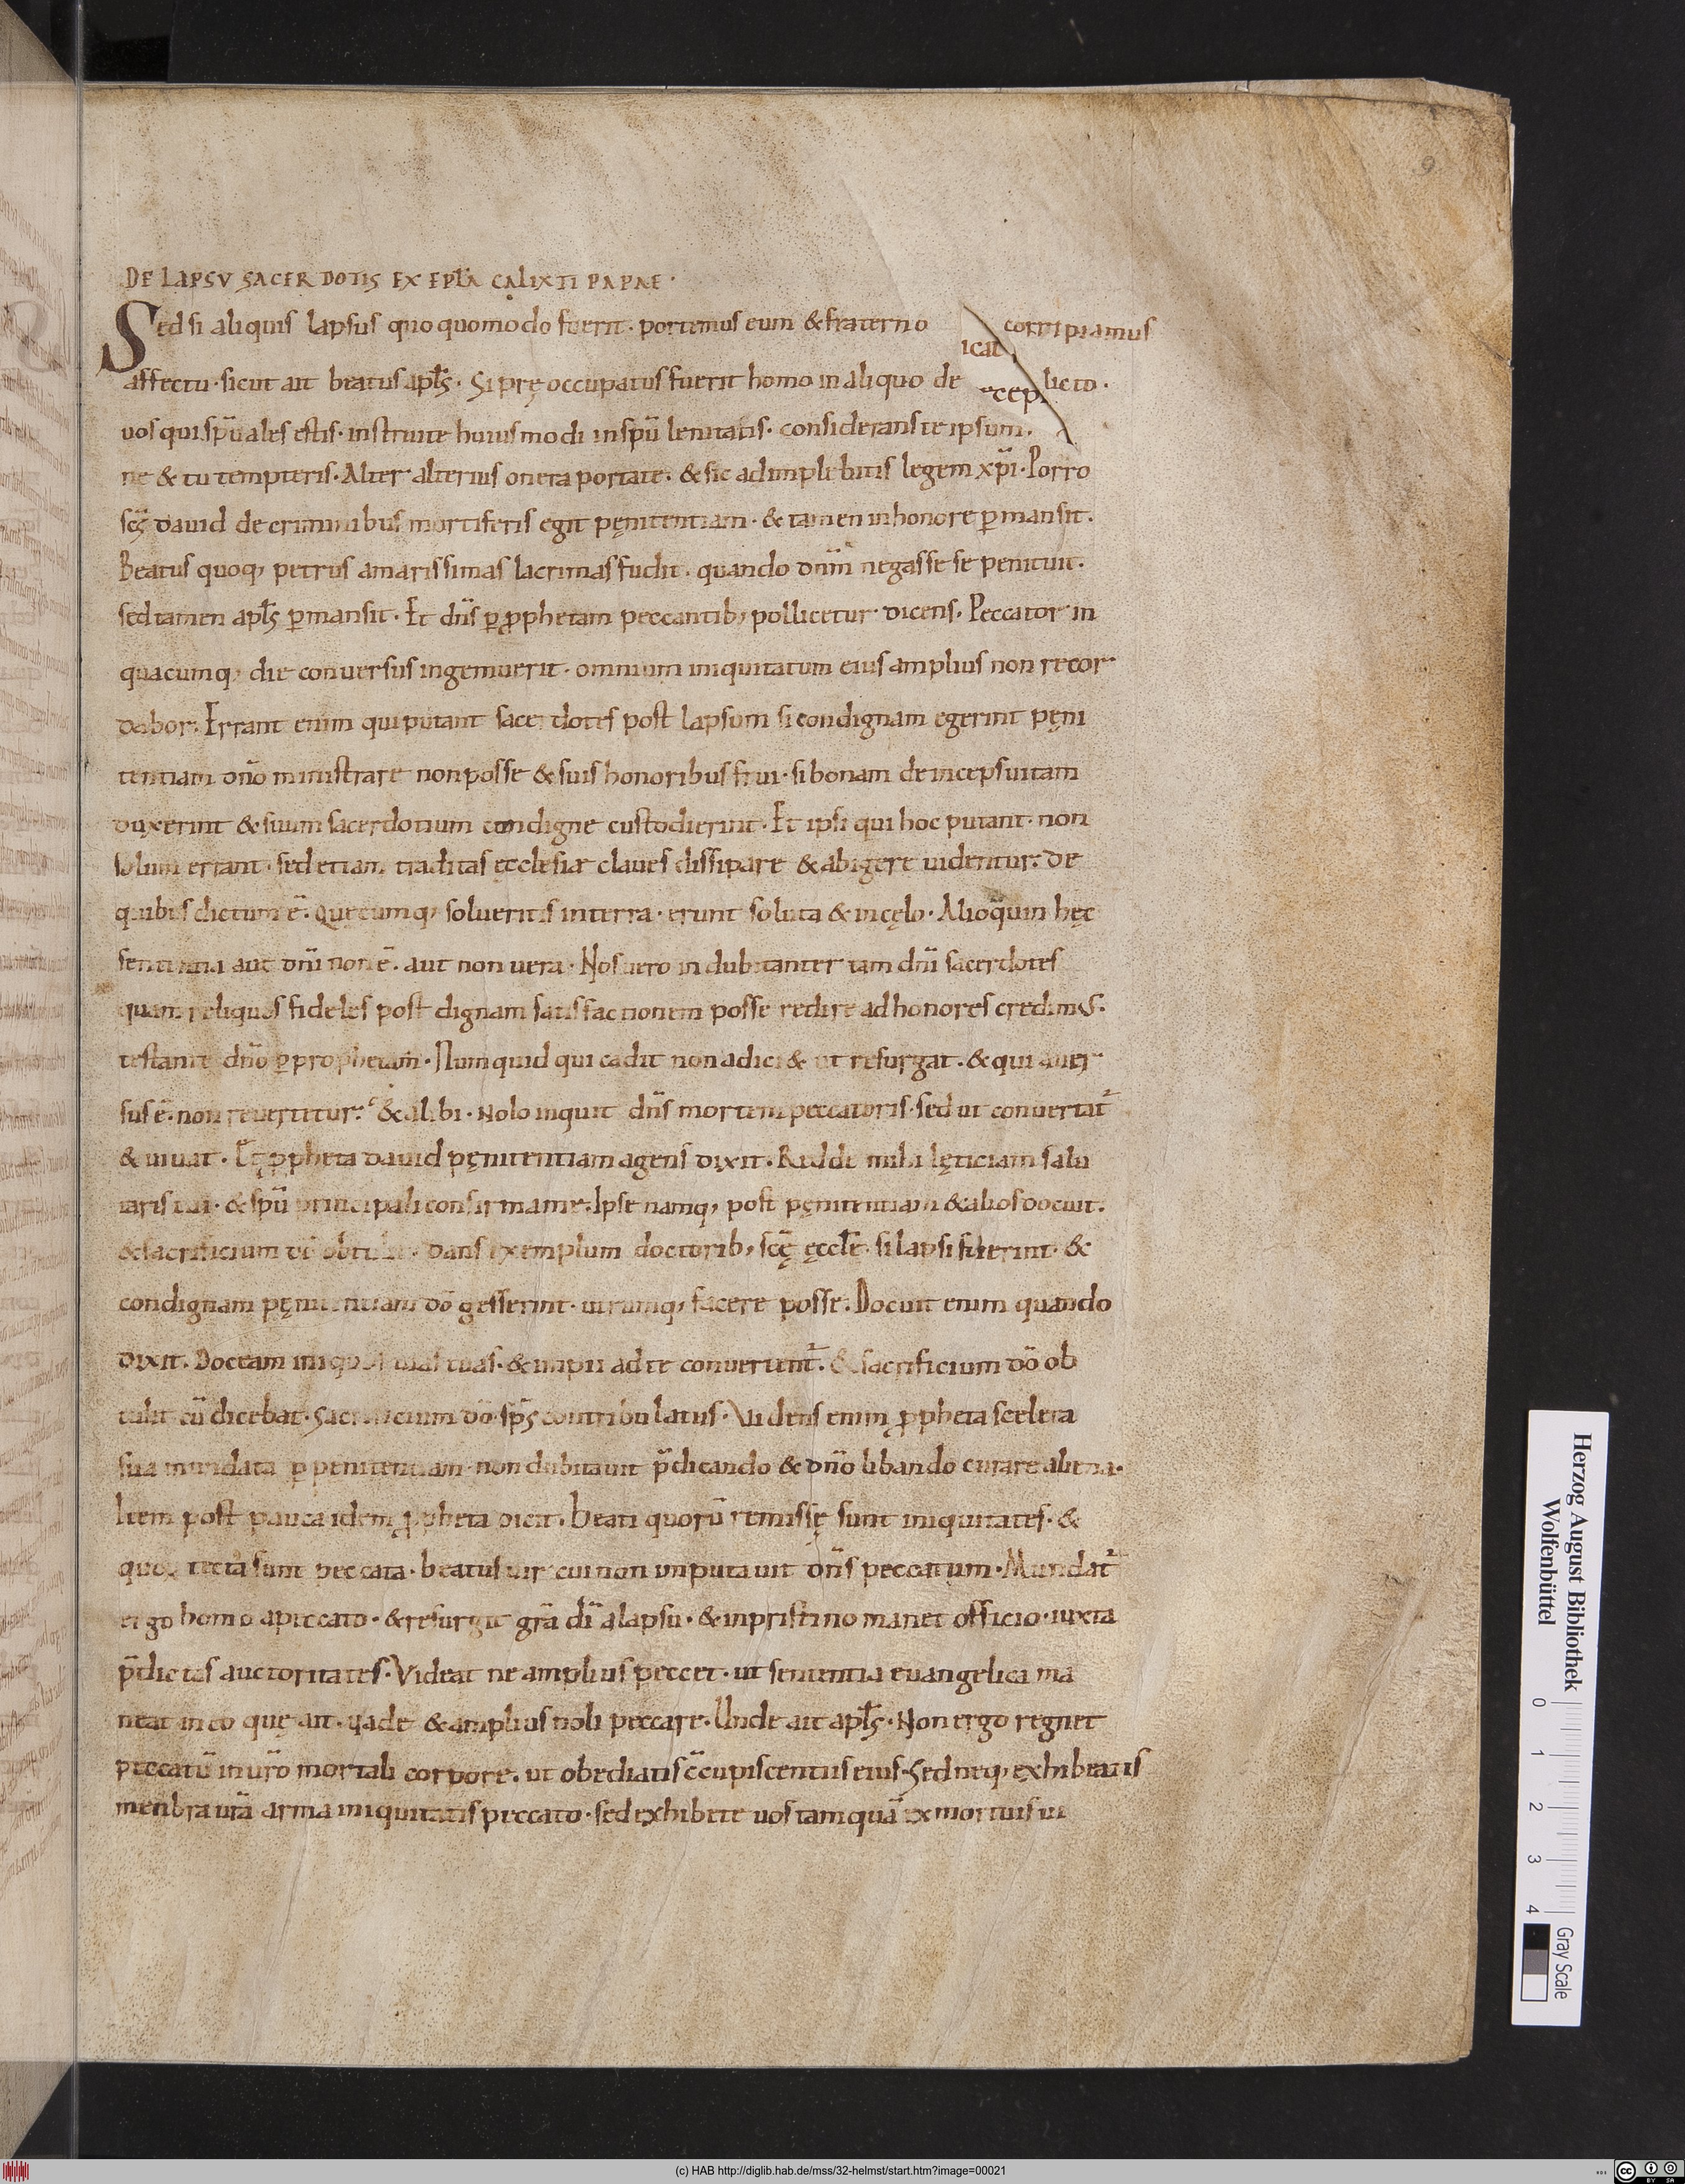 9
DE LAPSV SACERDOTIS EX EPLA CALIXTI PAPAE·
Sed si aliquis lapsus quoquomodo fuerit· portemus eum & fraterno corripiamus
icat
affectu· sicut ait beatus apłs· Si pręoccupatus fuerit homo in aliquo delicto·
ecep
uos qui sp̄uales estis· instruite huiusmodi in sp̄u lenitatis· considerans te ipsum.
ne & tu tempteris· Alter alterius onera portate· & sic adimplebitis legem xp̄i· Porro
sc̄s dauid de criminibus mortiferis egit pęnitentiam· & tamen in honore p̱mansit.
Beatus quoq; petrus amarissimas lacrimas fudit. quando dn̄m negasse se penituit.
sed tamen apłs p̱mansit· Et dn̄s p̱ ꝓphetam peccantib; pollicetur dicens. Peccator in
quacumq; die conuersus ingemuerit· omnium iniquitatum eius amplius non recor
dabor· Errant enim qui putant sacerdotes post lapsum si condignam egerint pęni
tentiam dn̄o ministrare non posse & suis honoribus frui· si bonam deinceps uitam
duxerint & suum sacerdotium condigne custodierint· Et ipsi qui hoc putant· non
solum errant· sed etiam traditas ęcclesiæ claues dissipare & abigere uidentur· de
quibus dictum ē· Quęcumq; solueritis in terra· erunt soluta & in cęlo· Alioquin hęc
sententia aut dn̄i non ē. aut non uera· Nos uero indubitanter tam dn̄i sacerdotes
quam reliquos fideles post dignam satisfactionem posse redire ad honores credimus.
testante dn̄o p̱ prophetam· Numquid qui cadit non adici& ut resurgat. & qui auer
sus ē· non reuertetur· & alibi· Nolo inquit dn̄s mortem peccatoris· sed ut conuertat᷑
& uiuat· Et ꝓpheta dauid pęnitentiam agens dixit· Redde mihi lęticiam salu
taris tui· & sp̄u principali confirma me· Ipse namq; post pęnitentiam & alios docuit.
& sacrificium dō obtulit· dans exemplum doctorib; sc̄ę ęccłe· si lapsi fuerint· &
condignam pęnitentiam dō gesserint· utrumq; facere posse· Docuit enim quando
dixit. Doceam iniquos uias tuas· & impii ad te conuertent᷑. & sacrificium dō ob
tulit cū dicebat· Sacrificium dō sp̄s contribulatus· Videns enim ꝓpheta scelera
sua mundata p̱ penitentiam non dubitauit p̄dicando & dn̄o libando curare aliena·
Item post pauca idem ꝓpheta dicit· Beati quorū remissę sunt iniquitates· &
quo tecta sunt peccata· beatus uir cui non inputauit dn̄s peccatum· Mundat᷑
ergo homo a peccato· & resurgit gr̄a dī a lapsu· & in pristino manet officio· iuxta
p̄dictas auctoritates· Videat ne amplius peccet· ut sententia euangelica ma
neat in eo quę ait· Vade & amplius noli peccare· Unde ait apłs· Non ergo regnet
peccatū in ur̄o mortali corpore. ut obediatis c̄cupiscentiis eius· Sed neq; exhibeatis
menbra ur̄a arma iniquitatis peccato· sed exhibete uos tamquā ex mortuis ui
Herzog August Bibliothek
Wolfenbüttel
0 1 2 3 4
Gray Scale
(c) HAB http://diglib.hab.de/mss/32-helmst/start.htm?image=00021